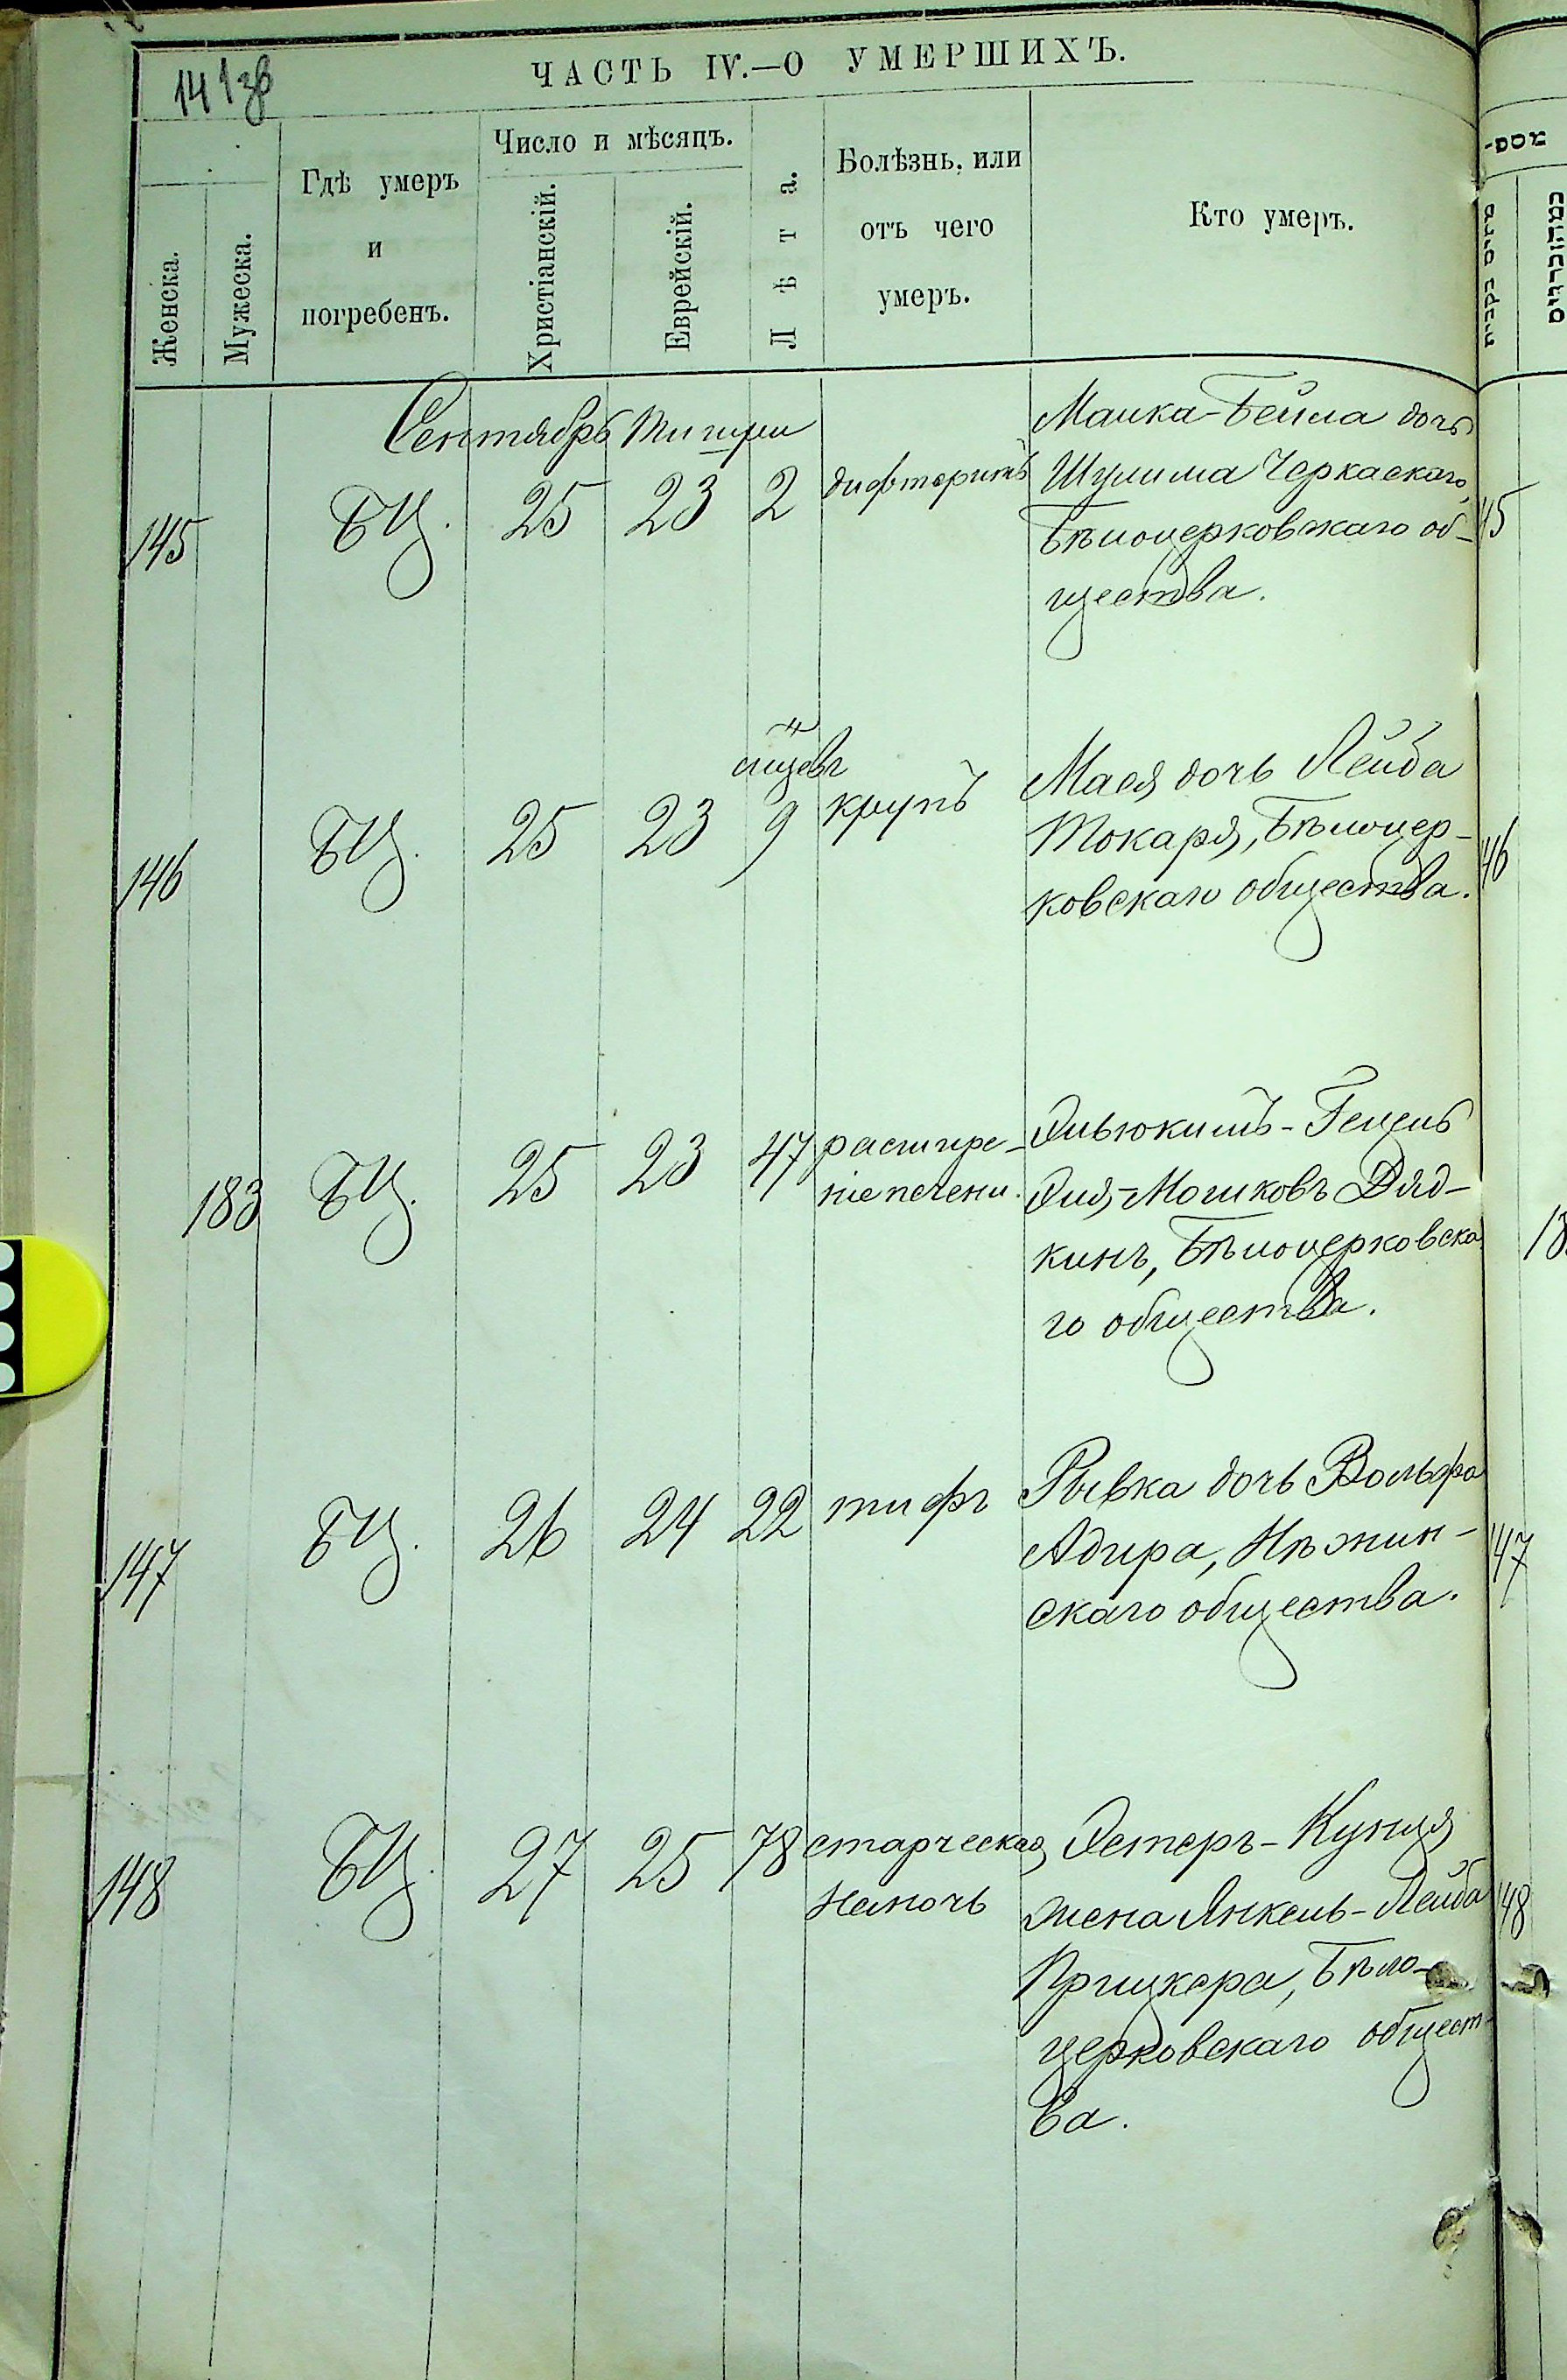 141 зв
ЧАСТЬ IV.—О УМЕРШИХЪ.
Женска.
Мужеска.
Гдѣ умеръ
и
погребенъ.
Число и мѣсяцъ.
Христіанскій.
Еврейскій.
Лѣта.
Болѣзнь, или
отъ чего
умеръ.
Кто умеръ.
Сентябрь Тишри
145
БЦ.
25
23
2
дифтеритъ
Малка-Бейла дочь
Шулима Черкаскаго,
Бѣлоцерковскаго об-
щества.
146
БЦ.
25
23
9
крупъ
Мася дочь Лейба
Токаря, Бѣлоцер-
ковскаго общества.
183
БЦ.
25
23
47
расшире-
ніе печени.
Эльюкимъ-Гецель
Эля-Мошковъ Дяд-
кинъ, Бѣлоцерковска
го общества.
147
БЦ.
26
24
22
тифъ
Рывка дочь Вольфа
Адира, Нѣжин-
скаго общества.
148
БЦ.
27
25
78
старческая
немочь
Эстеръ-Куция
жена Янкель-Лейба
Прицкера, Бѣло-
церковскаго общест-
ва.
45
46
18
147
148